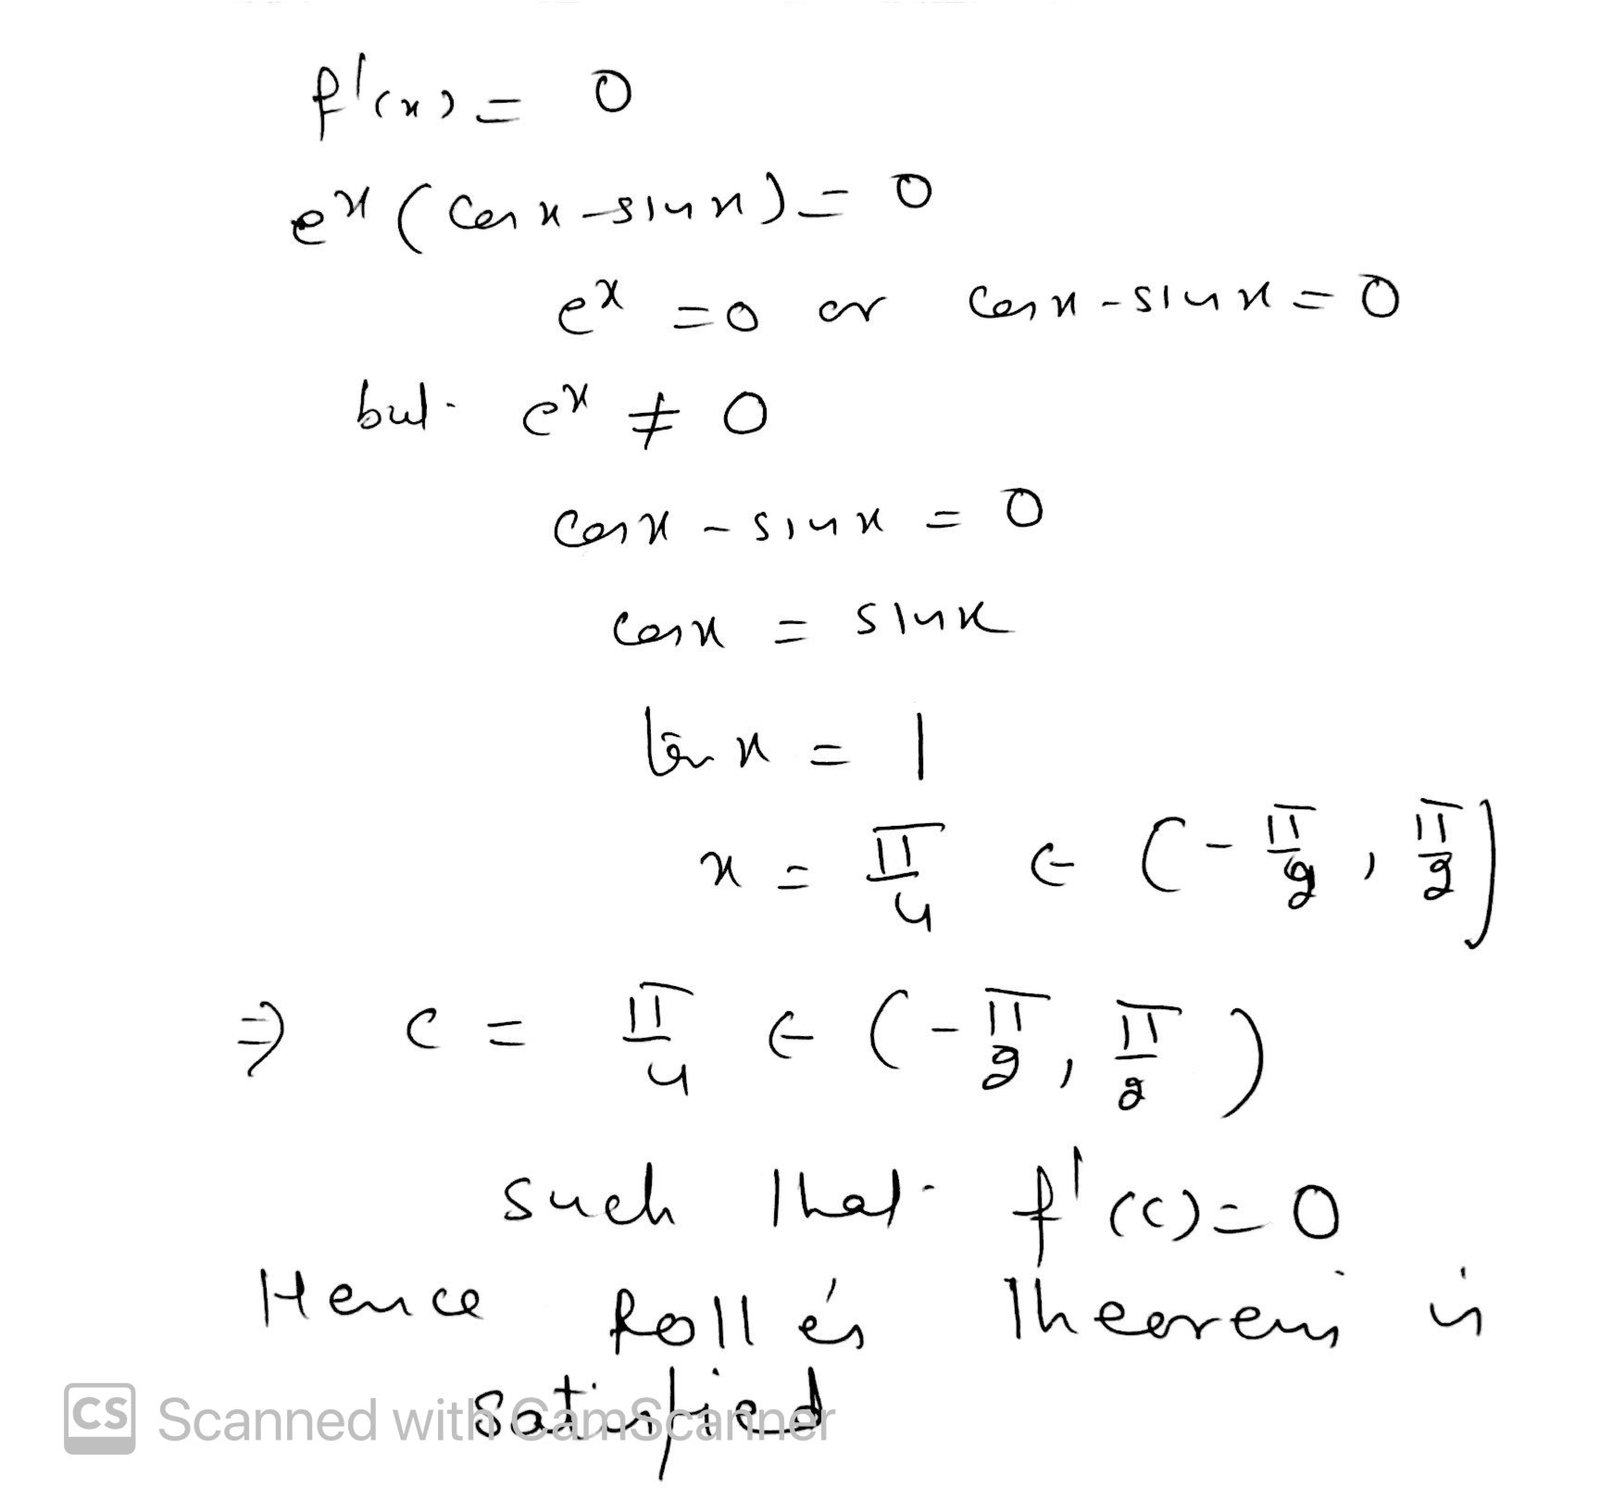 f'(x) = 0
e^x (cos x - sin x) = 0
e^x = 0 or cos x - sin x = 0
but e^x ≠ 0
cos x - sin x = 0
cos x = sin x
tan x = 1
x = π/4 ∈ (-π/2, π/2)
⇒ c = π/4 ∈ (-π/2, π/2)
such that f'(c) = 0
Hence Rolle's Theorem is
satisfied
CS Scanned with CamScanner